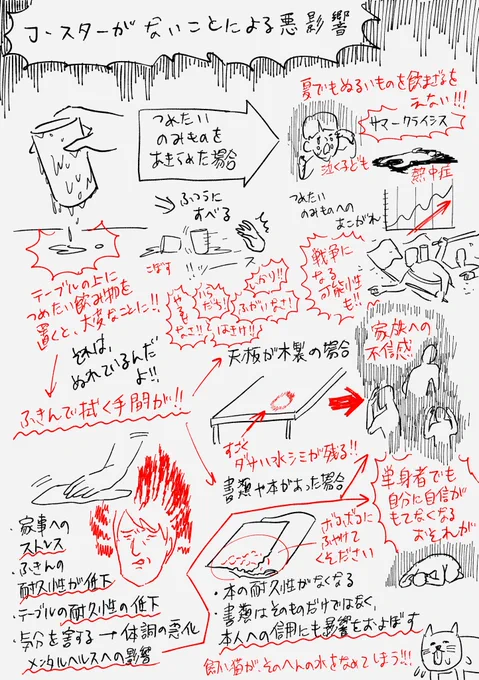 コースターがないことによる悪影響
つめたい
のみものを
あきらめた場合
夏でもぬるいものを飲まざるを
えない!!!
サマークライシス
泣く子ども
熱中症
つめたい
のみものへの
あこがれ
ふつうに
すべる
こぼす
戦争に
なる
可能性
も!!
テーブルの上に
つめたい飲み物を
置くと、大変なことに!!
いらだち!
ふがいなさ!
はきけ!!
それは、
ぬれているんだ
よ!!
ふきんで拭く手間が!!
天板が木製の場合
すごく
ダサい水シミが残る!!
家族への
不信感
書類や本があった場合
ボロボロに
ふやけて
ください
単身者でも
自分に自信が
もてなくなる
おそれが
・家事への
ストレス
・ふきんの
耐久性が低下
・テーブルの耐久性の低下
・気分を害する→体調の悪化
メンタルヘルスへの影響
・本の耐久性がなくなる
・書類はそのものだけではなく、
本人への信用にも影響をおよぼす
飼い猫が、そのへんの水をなめてしまう!!!